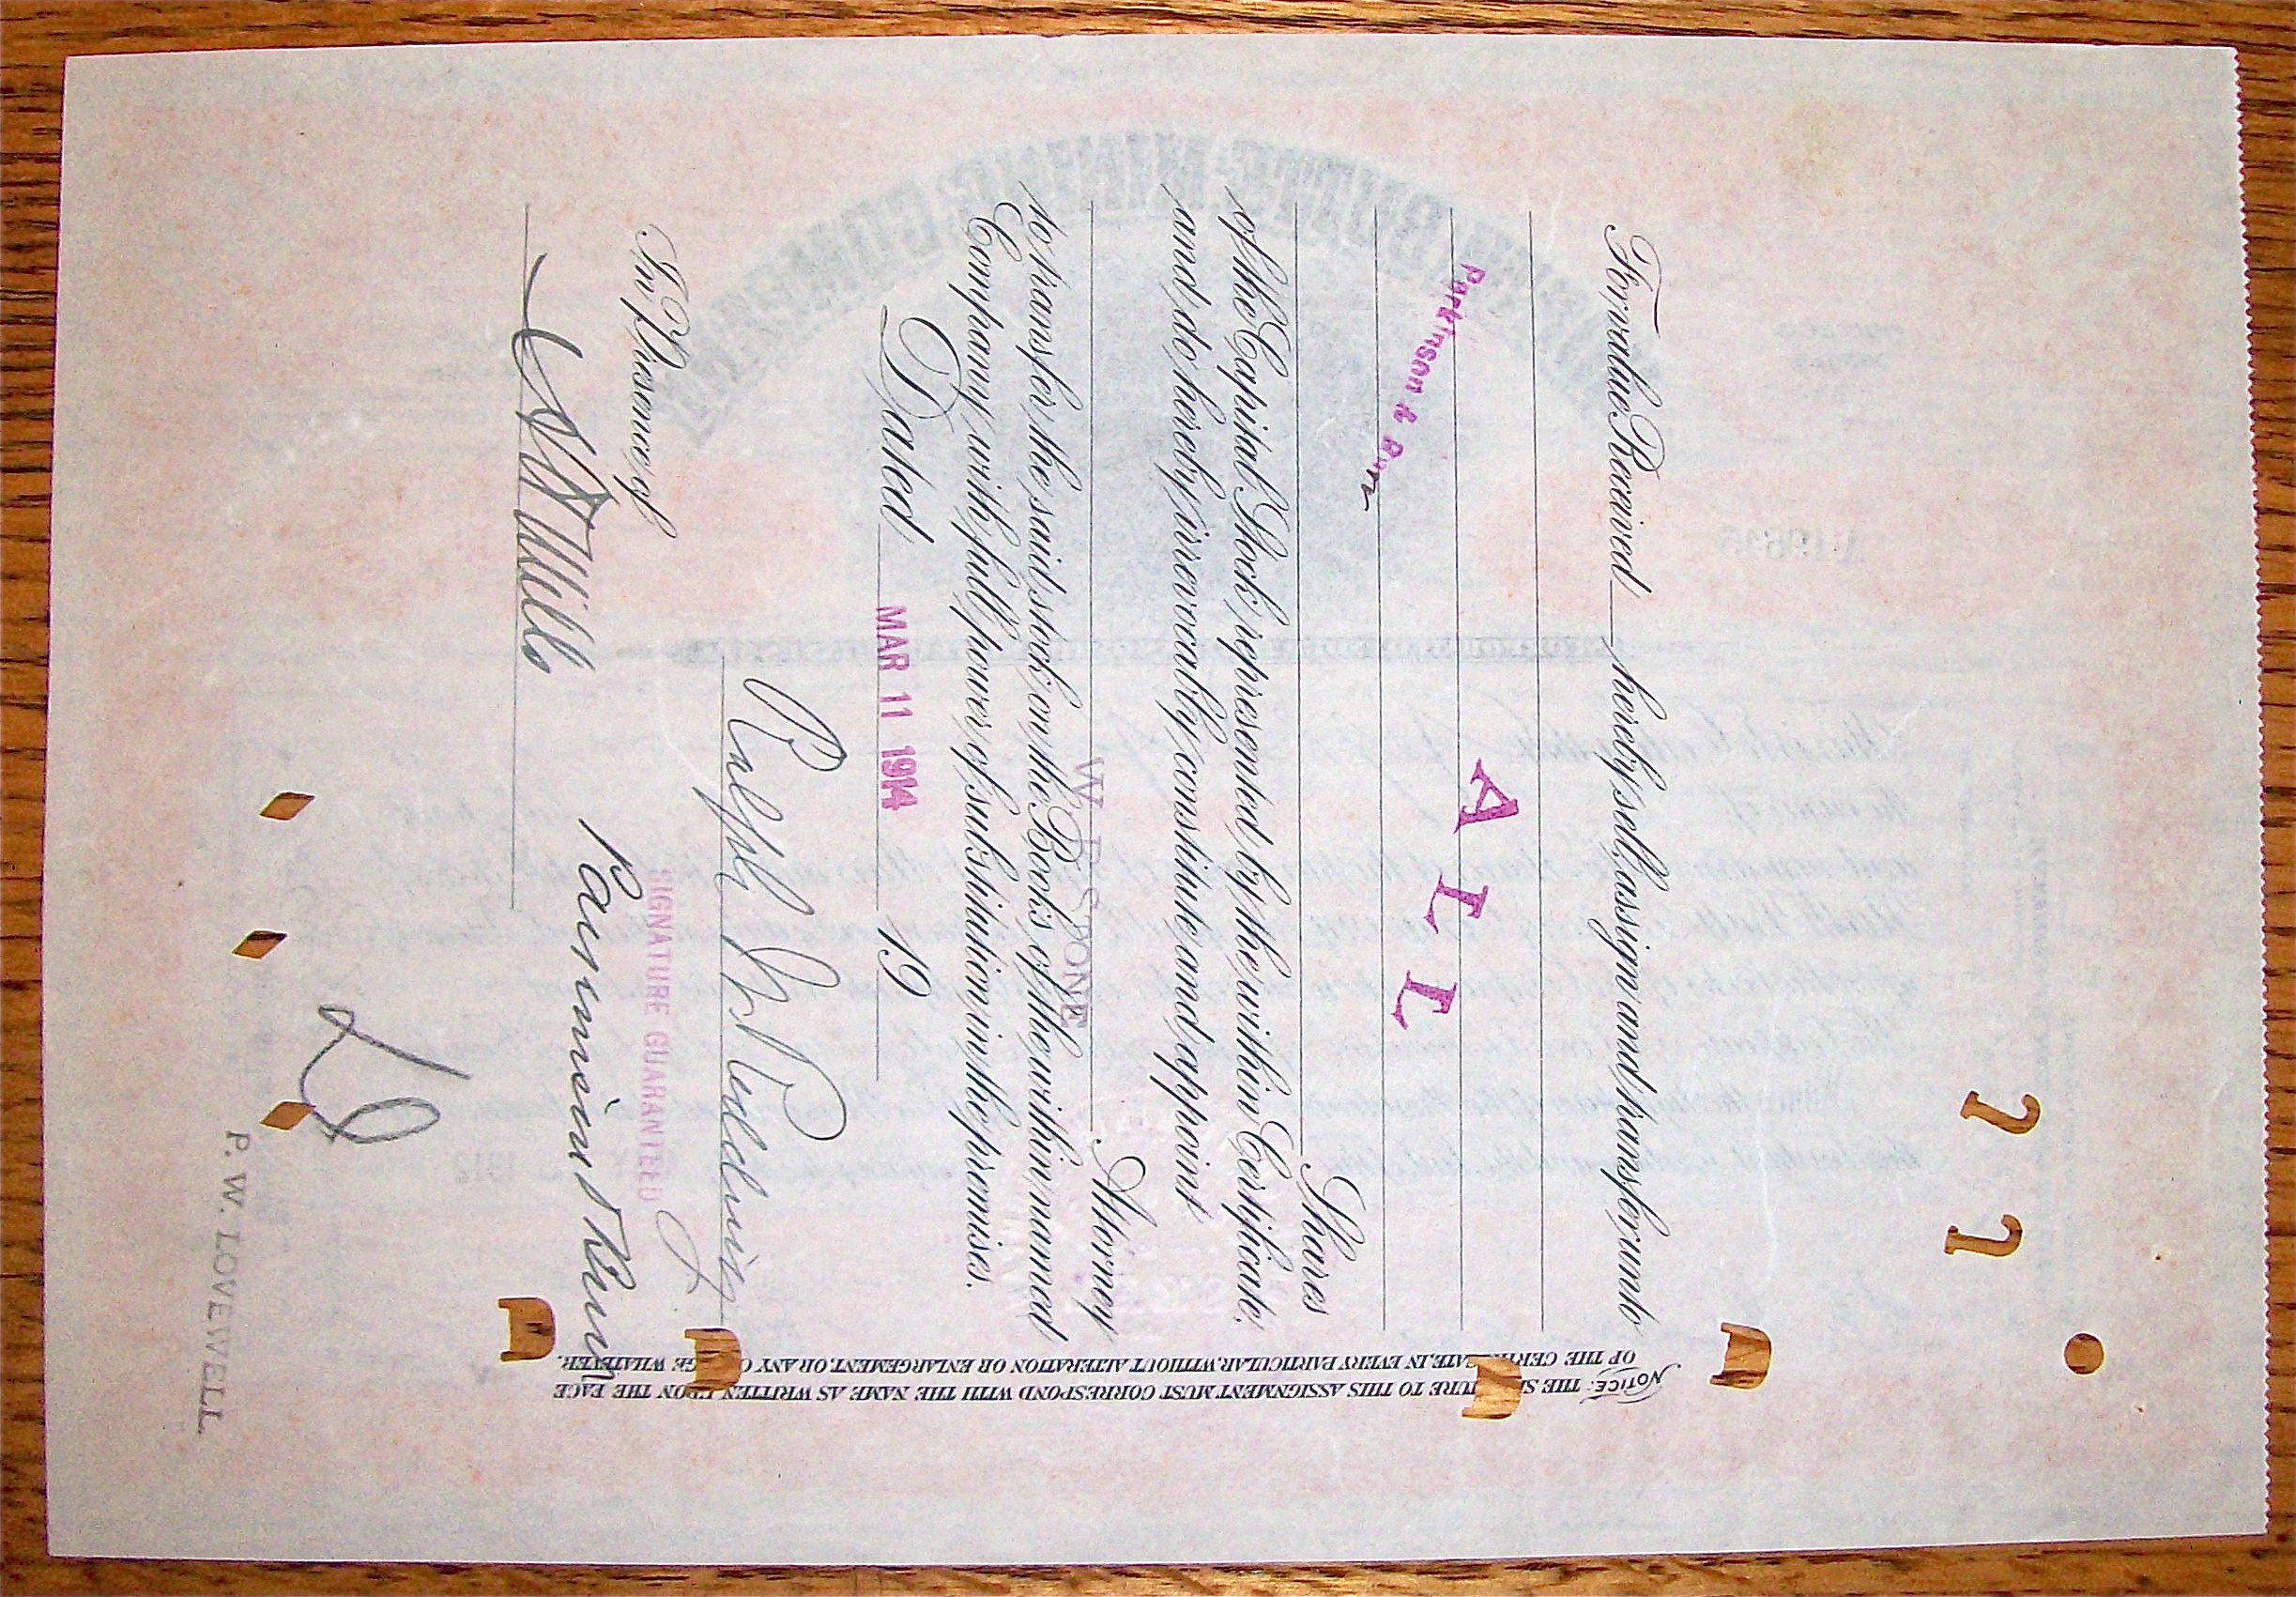 For value Received hereby sell, assign and transfer unto
Parkinson & Burr
ALL
Shares
of the Capital Stock represented by the within Certificate,
and do hereby irrevocably constitute and appoint
Attorney
to transfer the said stock on the Books of the within named
Company with full power of substitution in the premises.
Dated MAR 11 1914 19
Ralph W. Redding
In Presence of
SIGNATURE GUARANTEED
P. W. LOVEWELL
NOTICE: THE SIGNATURE TO THIS ASSIGNMENT MUST CORRESPOND WITH THE NAME AS WRITTEN UPON THE FACE
OF THE CERTIFICATE, IN EVERY PARTICULAR, WITHOUT ALTERATION OR ENLARGEMENT, OR ANY CHANGE WHATEVER.